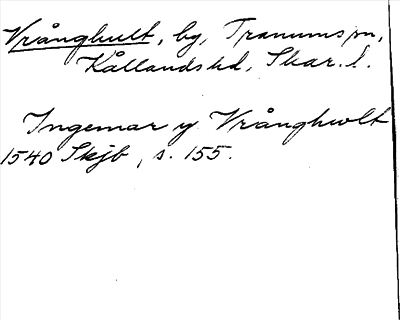 Vrånghult, by, Tranums sn,
Kållands hd, Skar. l.
Ingemar y Vrångholt
1540 Skjb, s. 155.